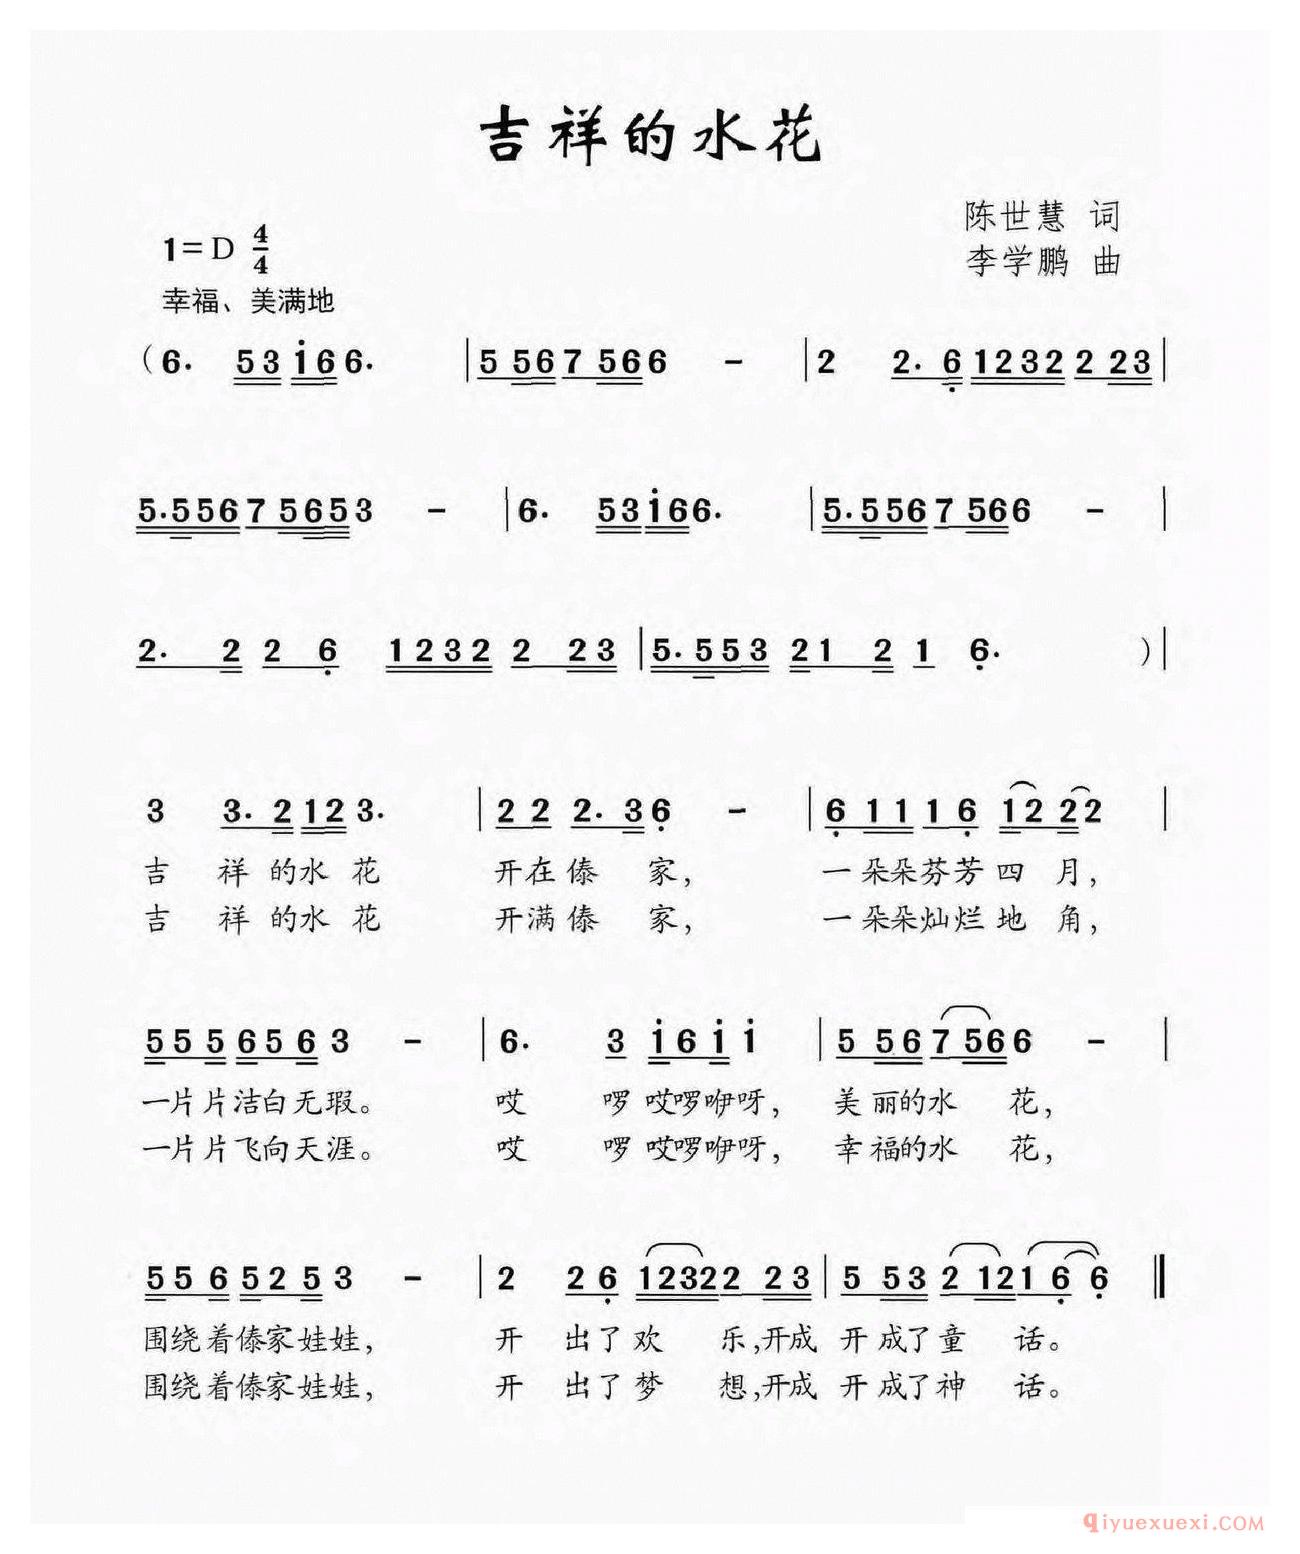 吉祥的水花
陈世慧 词
1=D 4/4
李学鹏 曲
幸福、美满地
(6. 53 i6 6. | 5 56 7 56 6 - | 2 2. 6 1232 2 23 |
5. 556 7 5653 - | 6. 53 i6 6. | 5. 556 7 56 6 - |
2. 2 2 6 1232 2 23 | 5. 553 21 2 1 6. )|
3 3. 2 12 3. | 2 2 2. 3 6 - | 6 11 1 6 12 2 2 |
吉 祥 的水 花 开在傣 家, 一朵朵芬芳四 月,
吉 祥 的水 花 开满傣 家, 一朵朵灿烂地 角,
5 5 5 6 5 6 3 - | 6. 3 i 6 i i | 5 56 7 56 6 - |
一片片洁白无瑕。 哎 啰哎啰咿呀, 美丽的水 花,
一片片飞向天涯。 哎 啰哎啰咿呀, 幸福的水 花,
5 5 6 5 2 5 3 - | 2 2 6 1232 2 23 | 5 53 2 12 1 6 6 ‖
围绕着傣家娃娃, 开 出了欢 乐,开成 开成了童 话。
围绕着傣家娃娃, 开 出了梦 想,开成 开成了神 话。
qiyuexuexi.COM